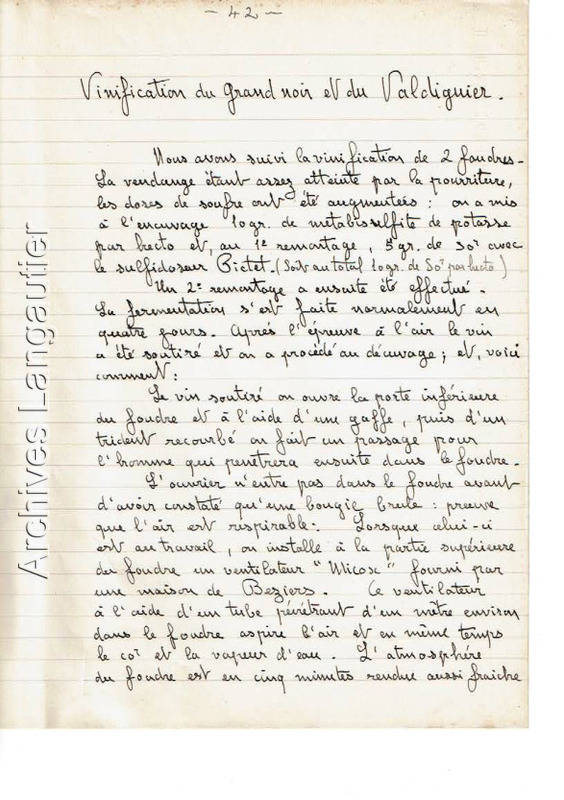 - 42 -
Vinification du Grand noir et du Valdiguier.
Nous avons suivi la vinification de 2 foudres-
La vendange étant assez atteinte par la pourriture,
les doses de soufre ont été augmentées : on a mis
à l'encuvage 10 gr. de métabisulfite de potasse
par hecto et, au 1e remontage, 5 gr. de So² avec
le sulfidoseur Pictet. (Soit au total 10 gr. de So² par hecto)
Un 2e remontage a ensuite été effectué.
La fermentation s'est faite normalement en
quatre jours. Après l'épreuve à l'air le vin
a été soutiré et on a procédé au décuvage ; et, voici
comment :
Le vin soutiré on ouvre la porte inférieure
du foudre et à l'aide d'une gaffe, puis d'un
trident recourbé on fait un passage pour
l'homme qui pénétrera ensuite dans le foudre.
L'ouvrier n'entre pas dans le foudre avant
d'avoir constaté qu'une bougie brule : preuve
que l'air est respirable : Lorsque celui-ci
est au travail, on installe à la partie supérieure
du foudre un ventilateur " " fourni par
une maison de Beziers. Ce ventilateur
à l'aide d'un tube pénétrant d'un mètre environ
dans le foudre aspire l'air et en même temps
le co² et la vapeur d'eau. L'atmosphére
du foudre est en cinq minutes rendue aussi fraiche
Archives Langautier